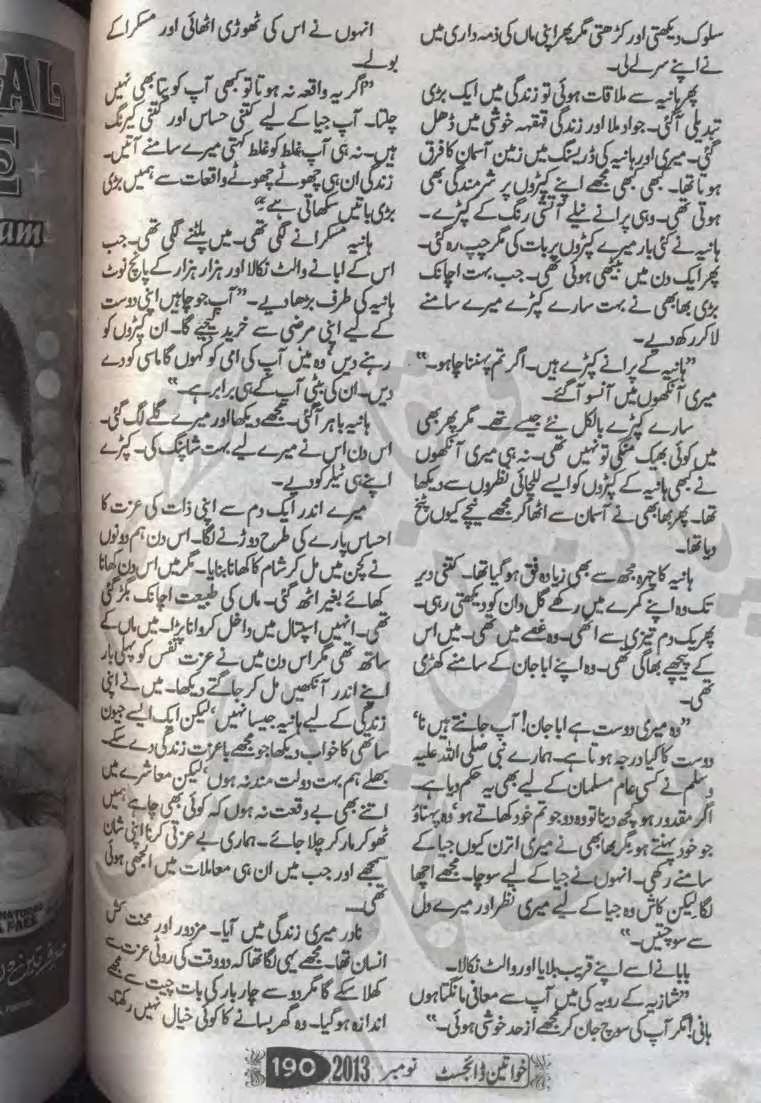 سلوک دیکھتی اور کڑھتی مگر پھر اپنی ماں کی ذمہ داری میں
نے اپنے سر لے لی۔
پھر ہانیہ سے ملاقات ہوئی تو زندگی میں ایک بڑی
تبدیلی آگئی۔ جو ادملا اور زندگی قہقہہ خوشی میں ڈھل
گئی۔ میری اور ہانیہ کی ڈریسنگ میں زمین آسمان کا فرق
ہوتا تھا۔ کبھی کبھی مجھے اپنے کپڑوں پر شرمندگی بھی
ہوتی تھی۔ وہی پرانے نیلے آتشی رنگ کے کپڑے۔
ہانیہ نے کئی بار میرے کپڑوں پر بات کی مگر چپ رہ گئی۔
پھر ایک دن میں بیٹھی ہوئی تھی۔ جب بہت اچانک
بڑی بھابھی نے بہت سارے کپڑے میرے سامنے
لا کر رکھ دیے۔
”ہانیہ کے پرانے کپڑے ہیں۔ اگر تم پہننا چاہو۔“
میری آنکھوں میں آنسو آگئے۔
سارے کپڑے بالکل نئے جیسے تھے۔ مگر پھر بھی
میں کوئی بھیک منگی تو نہیں تھی۔ نہ ہی میری آنکھوں
نے کبھی ہانیہ کے کپڑوں کو ایسے للچائی نظروں سے دیکھا
تھا۔ پھر بھابھی نے آسمان سے اٹھا کر مجھے نیچے کیوں پٹخ
دیا تھا۔
ہانیہ کا چہرہ مجھ سے بھی زیادہ فق ہو گیا تھا۔ کتنی دیر
تک وہ اپنے کمرے میں رکھے گل دان کو دیکھتی رہی۔
پھر یک دم تیزی سے اٹھی۔ وہ غصے میں تھی۔ میں اس
کے پیچھے بھاگی تھی۔ وہ اپنے ابا جان کے سامنے کھڑی
تھی۔
”وہ میری دوست ہے ابا جان! آپ جانتے ہیں نا‘
دوست کا کیا درجہ ہوتا ہے۔ ہمارے نبی صلی اللہ علیہ
وسلم نے کسی عام مسلمان کے لیے بھی یہ حکم دیا ہے۔
اگر مقدور ہو کچھ دینا تو وہ دو جو تم خود کھاتے ہو‘ وہ پہناؤ
جو خود پہنتے ہو مگر بھابھی نے میری اترن کیوں جیا کے
سامنے رکھی۔ انہوں نے جیا کے لیے سوچا۔ مجھے اچھا
لگا لیکن کاش وہ جیا کے لیے میری نظر اور میرے دل
سے سوچتیں۔“
بابا نے اسے اپنے قریب بلایا اور والٹ نکالا۔
”شازیہ کے رویہ کی میں آپ سے معافی مانگتا ہوں
ہانی! مگر آپ کی سوچ جان کر مجھے ازحد خوشی ہوئی۔“
انہوں نے اس کی ٹھوڑی اٹھائی اور مسکرا کے
بولے۔
”اگر یہ واقعہ نہ ہوتا تو کبھی آپ کو پتا بھی نہیں
چلتا۔ آپ جیا کے لیے کتنی حساس اور کتنی کیرنگ
ہیں۔ نہ ہی آپ غلط کو غلط کہتی میرے سامنے آتیں۔
زندگی ان ہی چھوٹے چھوٹے واقعات سے ہمیں بڑی
بڑی باتیں سکھاتی ہے۔“
ہانیہ مسکرانے لگی تھی۔ میں پلٹنے لگی تھی۔ جب
اس کے ابا نے والٹ نکالا اور ہزار ہزار کے پانچ نوٹ
ہانیہ کی طرف بڑھا دیے۔ ”آپ جو چاہیں اپنی دوست
کے لیے اپنی مرضی سے خرید لیجیے گا۔ ان کپڑوں کو
رہنے دیں‘ وہ میں آپ کی امی کو کہوں گا ماسی کو دے
دیں۔ ان کی بیٹی آپ کے ہی برابر ہے۔“
ہانیہ باہر آگئی۔ مجھے دیکھا اور میرے گلے لگ گئی۔
اس دن اس نے میرے لیے بہت شاپنگ کی۔ کپڑے
اپنے ہی ٹیلر کو دیے۔
میرے اندر ایک دم سے اپنی ذات کی عزت کا
احساس پارے کی طرح دوڑنے لگا۔ اس دن ہم دونوں
نے کچن میں مل کر شام کا کھانا بنایا۔ مگر میں اس دن کھانا
کھائے بغیر اٹھ گئی۔ ماں کی طبیعت اچانک بگڑ گئی
تھی۔ انہیں اسپتال میں داخل کروانا پڑا۔ میں ماں کے
ساتھ تھی مگر اس دن میں نے عزت نفس کو پہلی بار
اپنے اندر آنکھیں مل کر جاگتے دیکھا۔ میں نے اپنی
زندگی کے لیے ہانیہ جیسا نہیں‘ لیکن ایک ایسے جیون
ساتھی کا خواب دیکھا جو مجھے باعزت زندگی دے سکے۔
بھلے ہم بہت دولت مند نہ ہوں‘ لیکن معاشرے میں
اتنے بھی بے وقعت نہ ہوں کہ کوئی بھی چاہے ہمیں
ٹھوکر مار کر چلا جائے۔ ہماری بے عزتی کرنا اپنی شان
سمجھے اور جب میں ان ہی معاملات میں الجھی ہوئی
تھی۔
نادر میری زندگی میں آیا۔ مزدور اور محنت کش
انسان تھا۔ مجھے یہی لگا تھا کہ دو وقت کی روٹی عزت سے
کھلا سکے گا مگر دو سے چار بار کی بات چیت سے مجھے
اندازہ ہو گیا۔ وہ گھر بسانے کا کوئی خیال نہیں رکھتا۔
خواتین ڈائجسٹ نومبر 2013 190